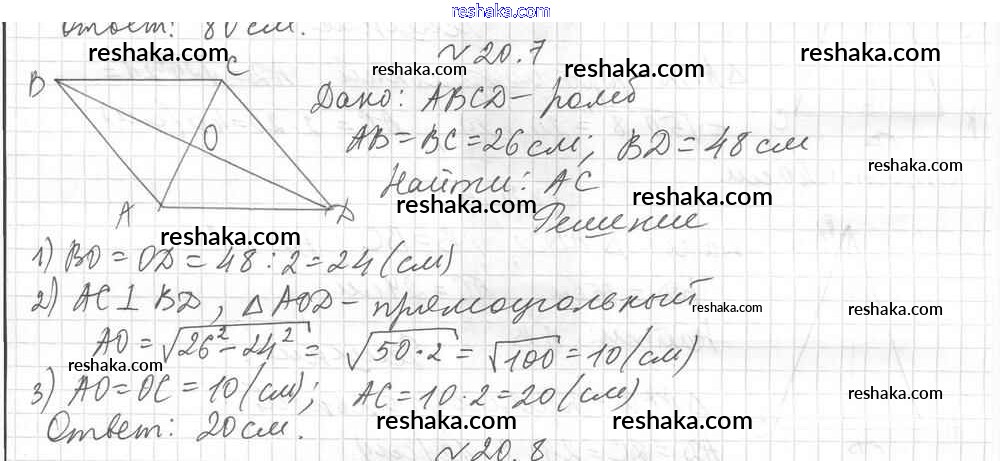 reshaka.com
Ответ: 80 см.
reshaka.com
reshaka.com
№ 20.7
reshaka.com
reshaka.com
reshaka.com
B
C
O
A
D
Дано: ABCD – ромб
AB = BC = 26 см; BD = 48 см
reshaka.com
Найти: AC
reshaka.com
reshaka.com
Решение
reshaka.com
1) BO = OD = 48 : 2 = 24 (см)
2) AC ⊥ BD, △ AOD – прямоугольный
reshaka.com
AO = √26² – 24² = √50 · 2 = √100 = 10 (см)
reshaka.com
3) AO = OC = 10 (см); AC = 10 · 2 = 20 (см)
reshaka.com
Ответ: 20 см.
reshaka.com
reshaka.com
reshaka.com
№ 20.8